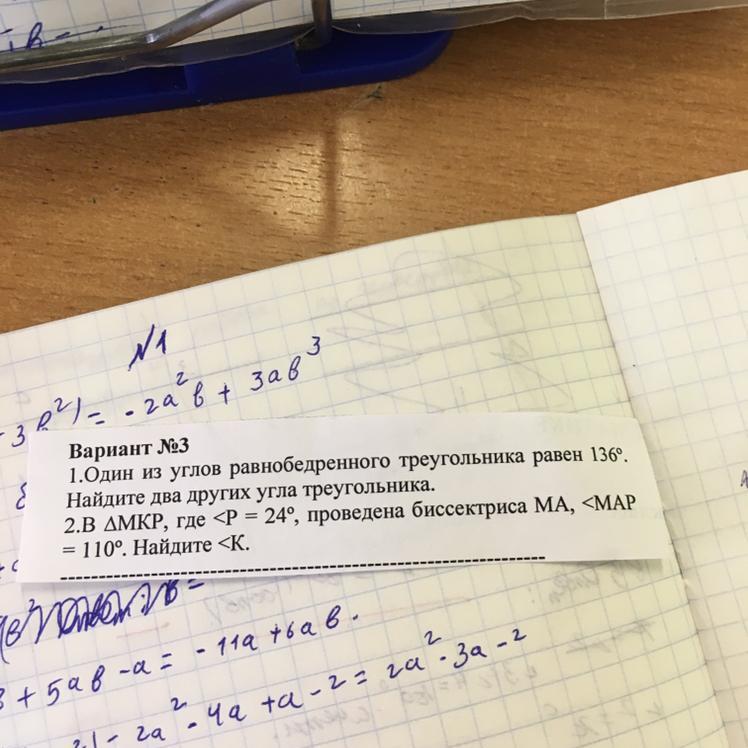 N1
3b²) = -2a²b + 3ab³
Вариант №3
1.Один из углов равнобедренного треугольника равен 136º.
Найдите два других угла треугольника.
2.В ΔМКР, где <Р = 24º, проведена биссектриса МА, <МАР
= 110º. Найдите <К.
+ 5ab - a = -11a + 6ab.
- 2a² - 4a + a - 2 = 2a² - 3a - 2